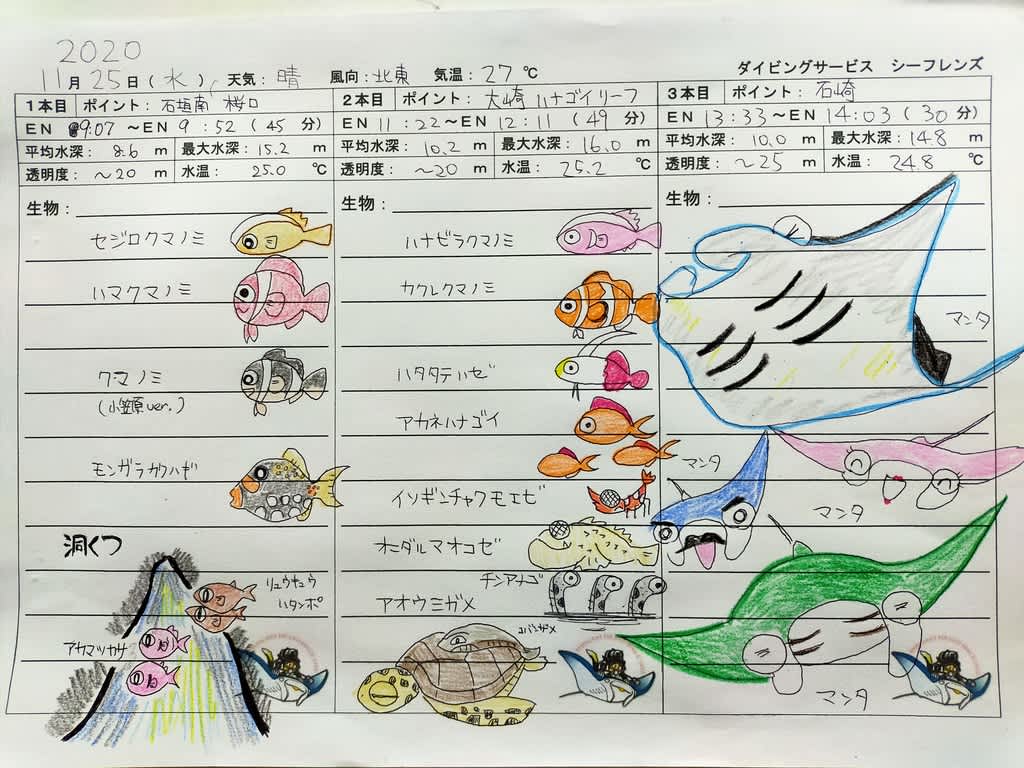 2020
11月25日(水) 天気:晴 風向:北東 気温:27℃
ダイビングサービス シーフレンズ
1本目 ポイント:石垣南 桜口
EN 9:07 ~EN 9:52 (45 分)
平均水深:8.6 m 最大水深:15.2 m
透明度:~20 m 水温:25.0 ℃
生物:
セジロクマノミ
ハマクマノミ
クマノミ
(小笠原ver.)
モンガラカワハギ
洞くつ
リュウキュウ
ハタンポ
アカマツカサ
2本目 ポイント:大崎 ハナゴイリーフ
EN 11:22~EN 12:11 (49 分)
平均水深:10.2 m 最大水深:16.0 m
透明度:~20 m 水温:25.2 ℃
生物:
ハナビラクマノミ
カクレクマノミ
ハタタテハゼ
アカネハナゴイ
イソギンチャクモエビ
オニダルマオコゼ
チンアナゴ
アオウミガメ
コバンザメ
3本目 ポイント:石崎
EN 13:33~EN 14:03 (30 分)
平均水深:10.0 m 最大水深:14.8 m
透明度:~25 m 水温:24.8 ℃
生物:
マンタ
マンタ
マンタ
マンタ